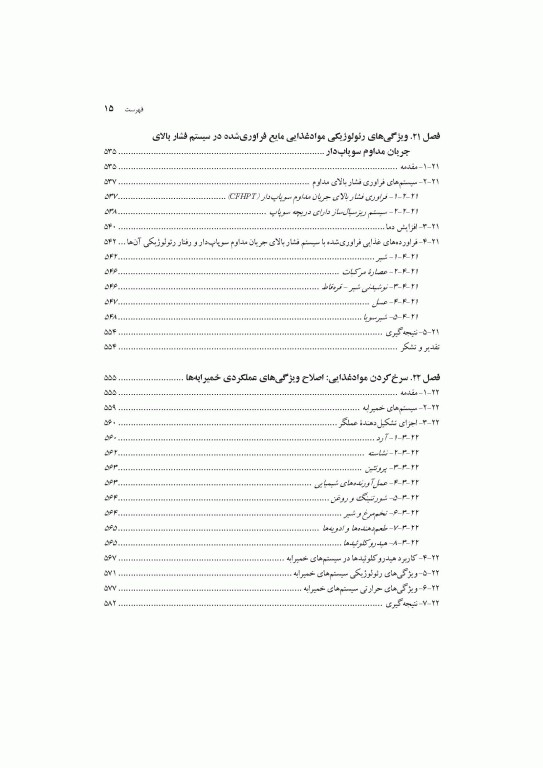 فهرست ۱۵
فصل ۲۱. ویژگی‌های رئولوژیکی موادغذایی مایع فراوری‌شده در سیستم فشار بالای
جریان مداوم سوپاپ‌دار ........ ۵۳۵
۲۱-۱- مقدمه ........ ۵۳۵
۲۱-۲- سیستم‌های فراوری فشار بالای مداوم ........ ۵۳۷
۲۱-۲-۱- فراوری فشار بالای جریان مداوم سوپاپ‌دار (CFHPT) ........ ۵۳۷
۲۱-۲-۲- سیستم ریزسیال‌ساز دارای دریچه سوپاپ ........ ۵۳۸
۲۱-۳- افزایش دما ........ ۵۴۰
۲۱-۴- فراورده‌های غذایی فراوری‌شده با سیستم فشار بالای جریان مداوم سوپاپ‌دار و رفتار رئولوژیکی آن‌ها ... ۵۴۲
۲۱-۴-۱- شیر ........ ۵۴۲
۲۱-۴-۲- عصارهٔ مرکبات ........ ۵۴۶
۲۱-۴-۳- نوشیدنی شیر - قره‌قاط ........ ۵۴۶
۲۱-۴-۴- عسل ........ ۵۴۷
۲۱-۴-۵- شیرسویا ........ ۵۴۸
۲۱-۵- نتیجه‌گیری ........ ۵۵۴
تقدیر و تشکر ........ ۵۵۴
فصل ۲۲. سرخ‌کردن موادغذایی: اصلاح ویژگی‌های عملکردی خمیرابه‌ها ........ ۵۵۵
۲۲-۱- مقدمه ........ ۵۵۵
۲۲-۲- سیستم‌های خمیرابه ........ ۵۵۹
۲۲-۳- اجزای تشکیل‌دهندهٔ عملگر ........ ۵۶۰
۲۲-۳-۱- آرد ........ ۵۶۰
۲۲-۳-۲- نشاسته ........ ۵۶۲
۲۲-۳-۳- پروتئین ........ ۵۶۳
۲۲-۳-۴- عمل‌آورنده‌های شیمیایی ........ ۵۶۳
۲۲-۳-۵- شورتنینگ و روغن ........ ۵۶۴
۲۲-۳-۶- تخم‌مرغ و شیر ........ ۵۶۴
۲۲-۳-۷- طعم‌دهنده‌ها و ادویه‌ها ........ ۵۶۵
۲۲-۳-۸- هیدروکلوئیدها ........ ۵۶۵
۲۲-۴- کاربرد هیدروکلوئیدها در سیستم‌های خمیرابه ........ ۵۶۷
۲۲-۵- ویژگی‌های رئولوژیکی سیستم‌های خمیرابه ........ ۵۷۱
۲۲-۶- ویژگی‌های حرارتی سیستم‌های خمیرابه ........ ۵۷۷
۲۲-۷- نتیجه‌گیری ........ ۵۸۲